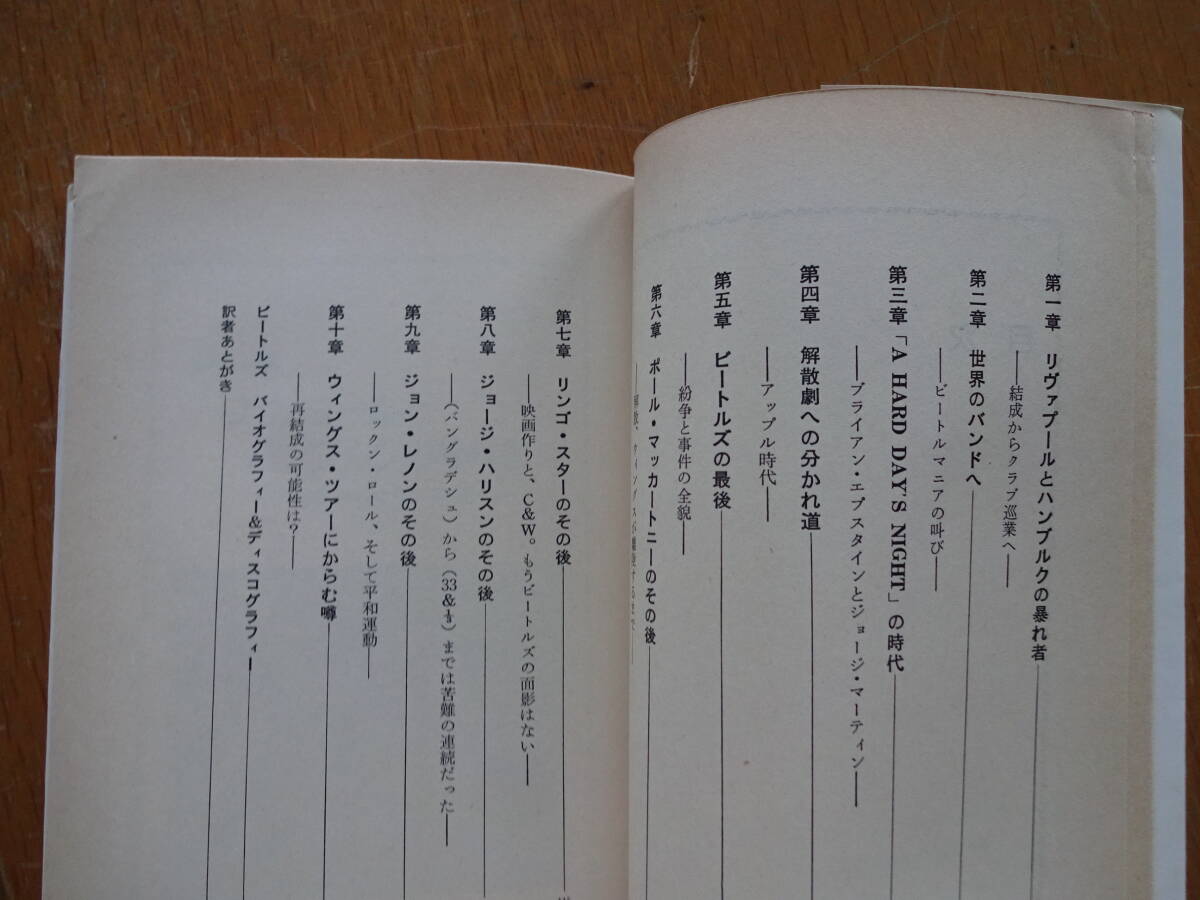 第一章 リヴァプールとハンブルクの暴れ者
——結成からクラブ巡業へ——
第二章 世界のバンドへ
——ビートルマニアの叫び——
第三章 「A HARD DAY'S NIGHT」の時代
——ブライアン・エプスタインとジョージ・マーティン——
第四章 解散劇への分かれ道
——アップル時代——
第五章 ビートルズの最後
——紛争と事件の全貌——
第六章 ポール・マッカートニーのその後
——解散、ウィングスが
第七章 リンゴ・スターのその後
——映画作りと、C&W。もうビートルズの面影はない——
第八章 ジョージ・ハリスンのその後
——(バングラデシュ)から(33&⅓)までは苦難の連続だった——
第九章 ジョン・レノンのその後
——ロックン・ロール、そして平和運動——
第十章 ウィングス・ツアーにからむ噂
——再結成の可能性は?——
ビートルズ バイオグラフィー&ディスコグラフィー
訳者あとがき